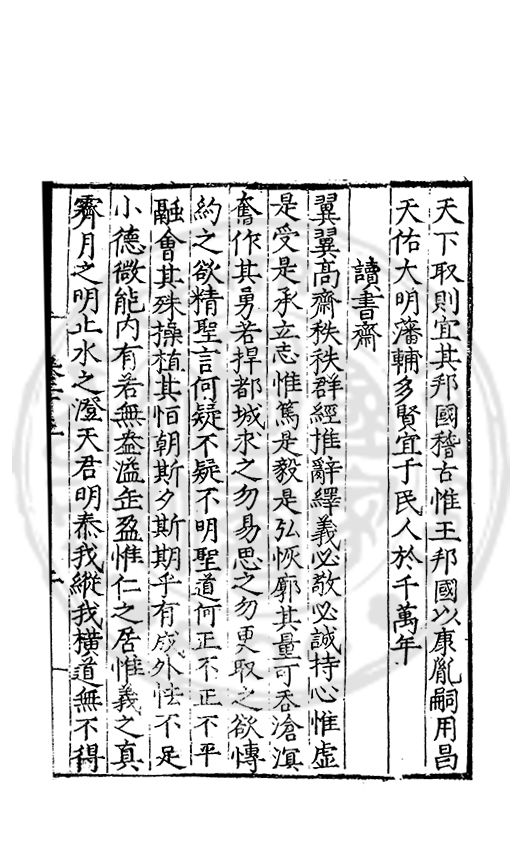 天下取則宜其邦國稽古惟王邦國以康胤嗣用昌
天佑大明藩輔多賢宜于民人於千萬年
讀書齋
翼翼高齋秩秩群經推辭繹義必敬必誠持心惟虛
是受是承立志惟篤是毅是弘恢廓其量可吞滄溟
奮作其勇若捍都城求之勿易思之勿更取之欲慱
約之欲精聖言何疑不疑不明聖道何正不正不平
融會其殊操植其恒朝斯夕斯期乎有成外恠不足
小德微能內有若無盎溢缶盈惟仁之居惟義之真
霽月之明止水之澄天君明泰我縱我橫道無不得